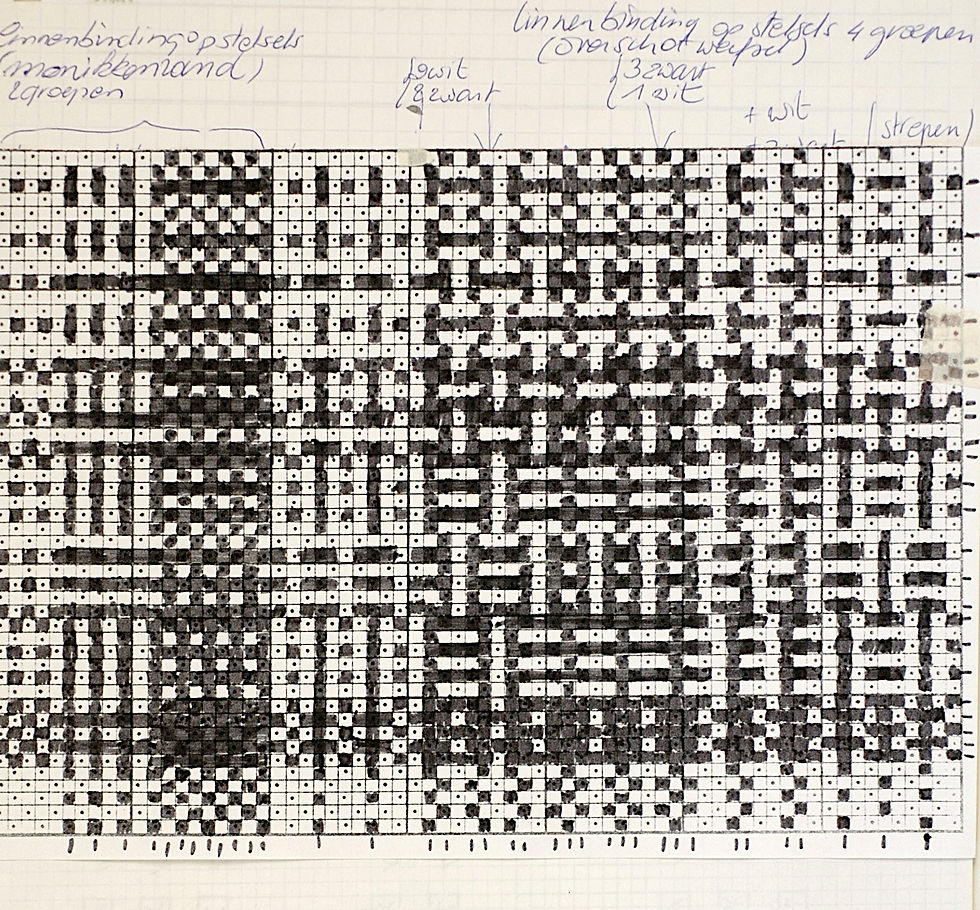 linnenbinding op stelsels
(monikkenand)
2 groepen
linnenbinding op stelsels 4 groepen
(overschot weefsel)
2 wit
2 zwart
3 zwart
1 wit
+ wit
(strepen)